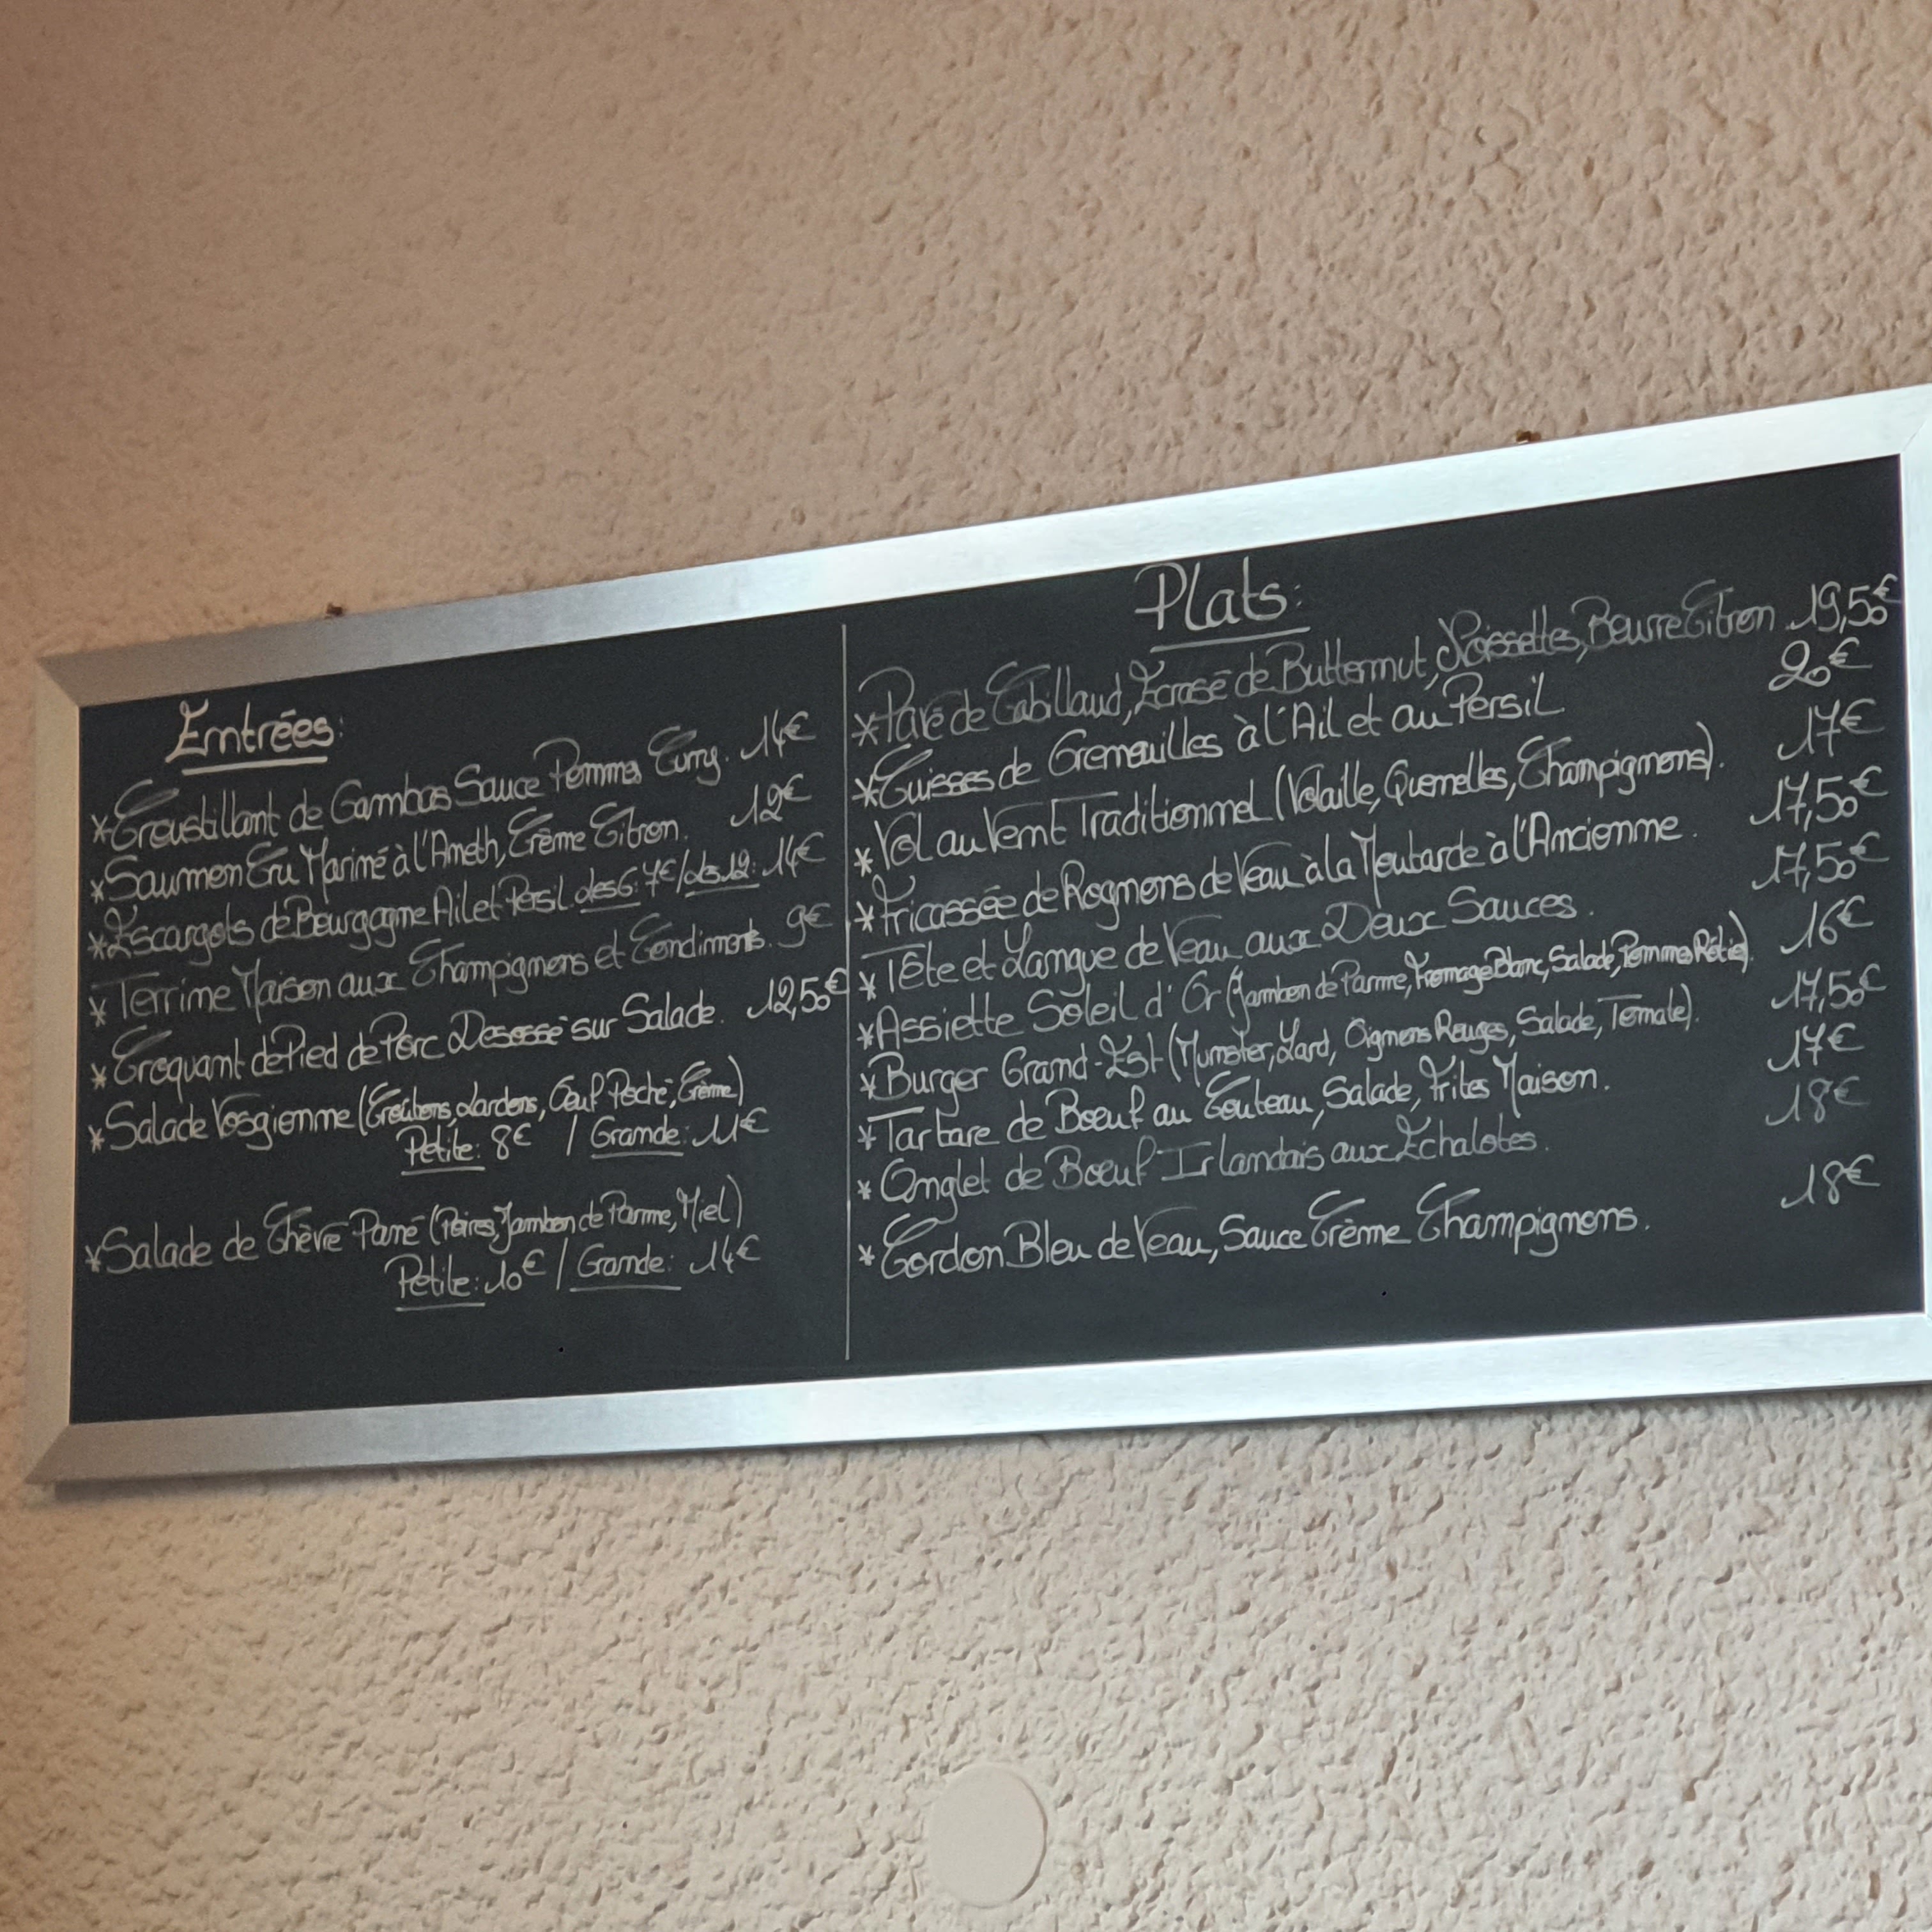 Entrées:
*Croustillant de Gambas Sauce Pomme Curry. 14€
*Saumon Cru Mariné à l'Aneth, Crème Citron. 12€
*Escargots de Bourgogne Ail et Persil les 6: 7€/les 12: 14€
*Terrine Maison aux Champignons et Condiments. 9€
*Croquant de Pied de Porc Désossé sur Salade. 12,50€
*Salade Vosgienne (Croûtons, Lardons, Oeuf Poché, Crème)
Petite: 8€ / Grande: 11€
*Salade de Chèvre Pané (Poires, Jambon de Parme, Miel)
Petite: 10€ / Grande: 14€
Plats:
*Pavé de Cabillaud, Ecrasé de Butternut, Noisettes, Beurre Citron 19,50€
*Cuisses de Grenouilles à l'Ail et au Persil. 20€
*Vol au Vent Traditionnel (Volaille, Quenelles, Champignons). 17€
*Fricassée de Rognons de Veau à la Moutarde à l'Ancienne. 17,50€
*Tête et Langue de Veau aux Deux Sauces. 17,50€
*Assiette Soleil d'Or (Jambon de Parme, Fromage Blanc, Salade, Pomme Rôtie). 16€
*Burger Grand-Est (Munster, Lard, Oignons Rouges, Salade, Tomate). 17,50€
*Tartare de Boeuf au Couteau, Salade, Frites Maison. 17€
*Onglet de Boeuf Irlandais aux Echalotes. 18€
*Cordon Bleu de Veau, Sauce Crème Champignons. 18€